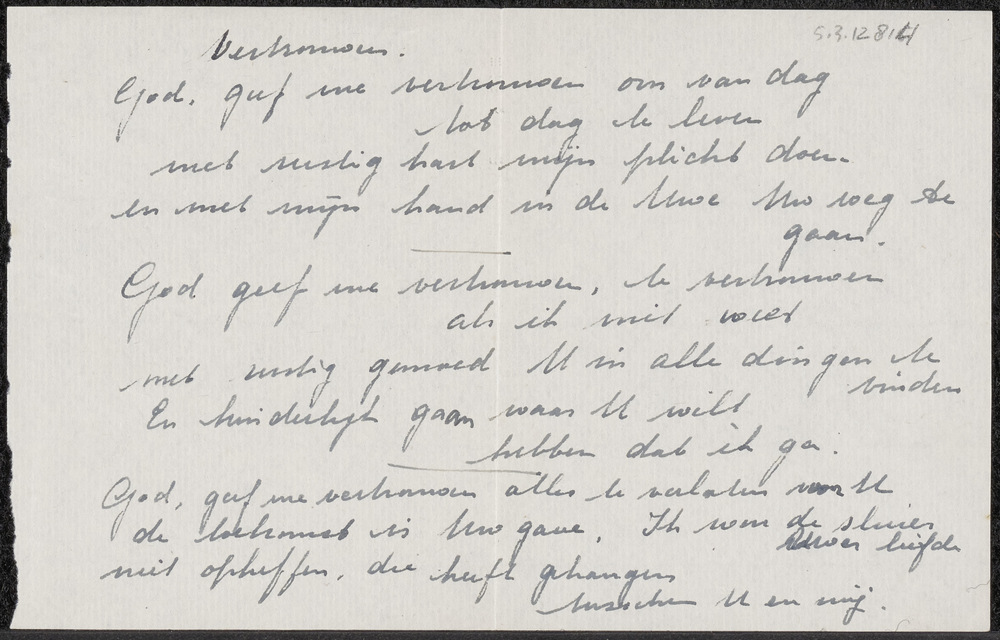 5.3.12814
Vertrouwen.
God, geef me vertrouwen om van dag
tot dag te leven
met rustig hart mijn plicht doen
en met mijn hand in de Uwe Uw weg te
gaan.
God geef me vertrouwen, te vertrouwen
als ik niet weet
met rustig gemoed U in alle dingen te
vinden
En kinderlijk gaan waar U wilt
hebben dat ik ga.
God, geef me vertrouwen alles te verlaten voor U
de toekomst is Uw gave. Ik wou de sluier
Uwer liefde
niet opheffen, die heeft gehangen
tusschen U en mij.